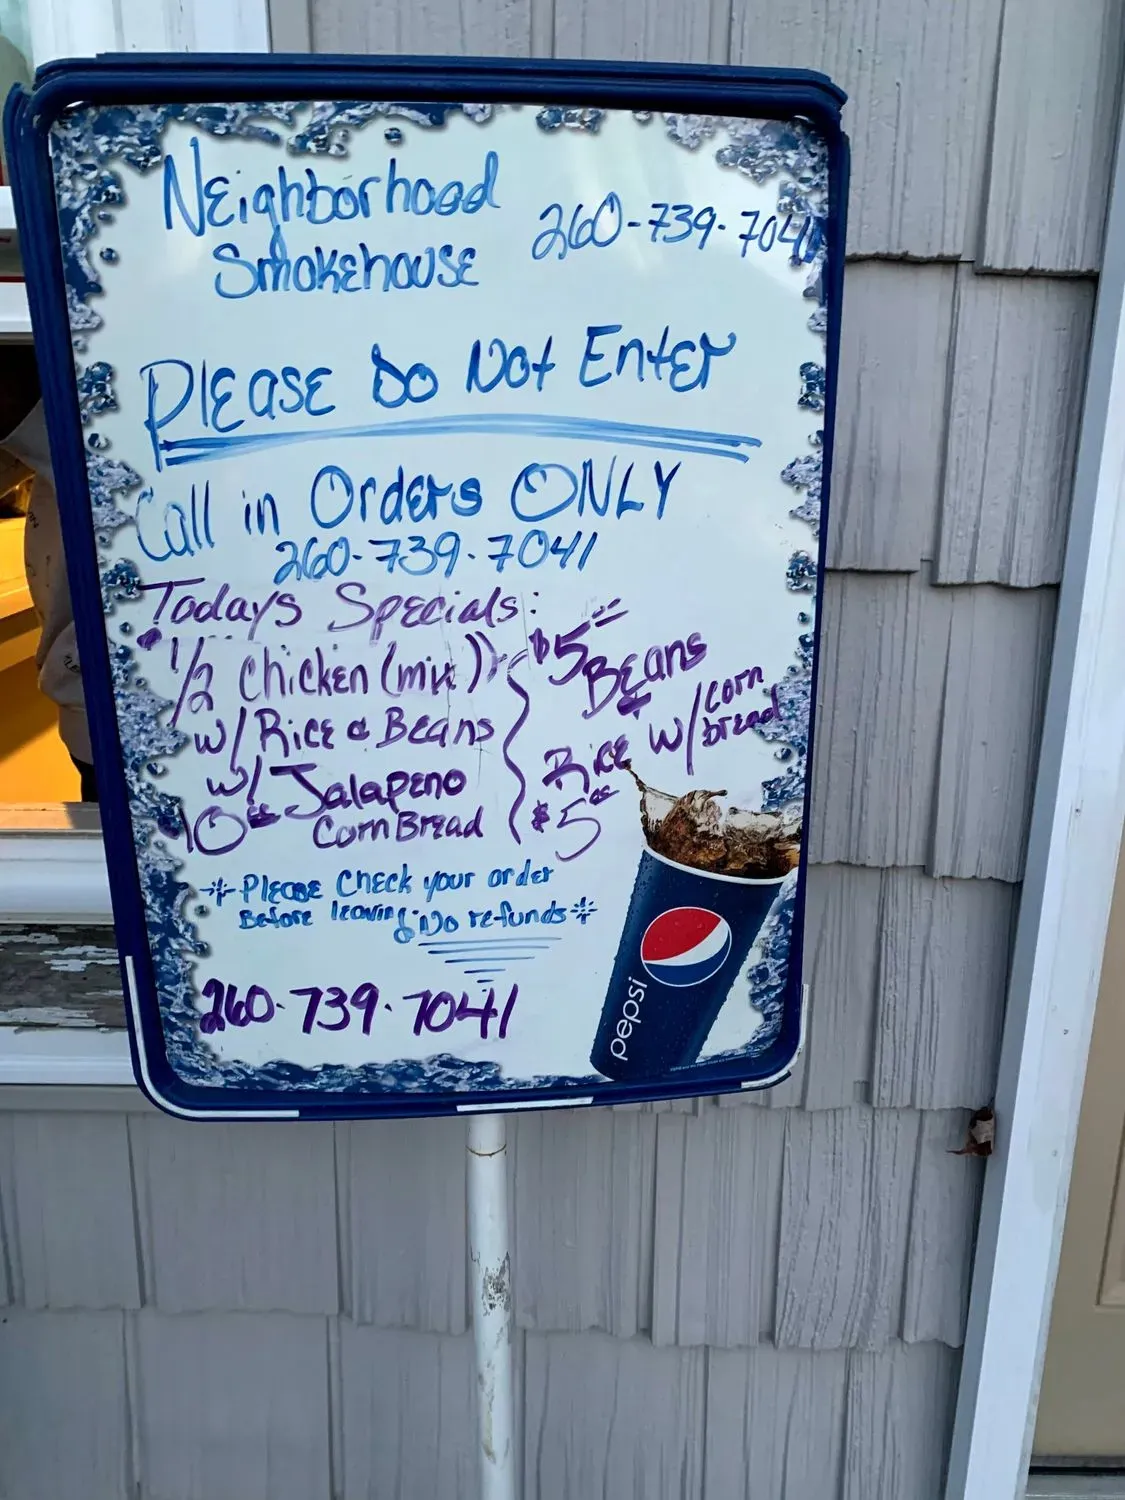 Neighborhood
Smokehouse
260-739-7041
Please Do Not Enter
Call in Orders ONLY
260-739-7041
Todays Specials:
1/2 Chicken (mix)
w/ Rice & Beans
w/ Jalapeno
10⁰⁰ Corn Bread
$5
Beans
&
Rice w/ corn
bread
$5⁰⁰
*Please Check your order
Before leaving. No refunds*
260-739-7041
pepsi